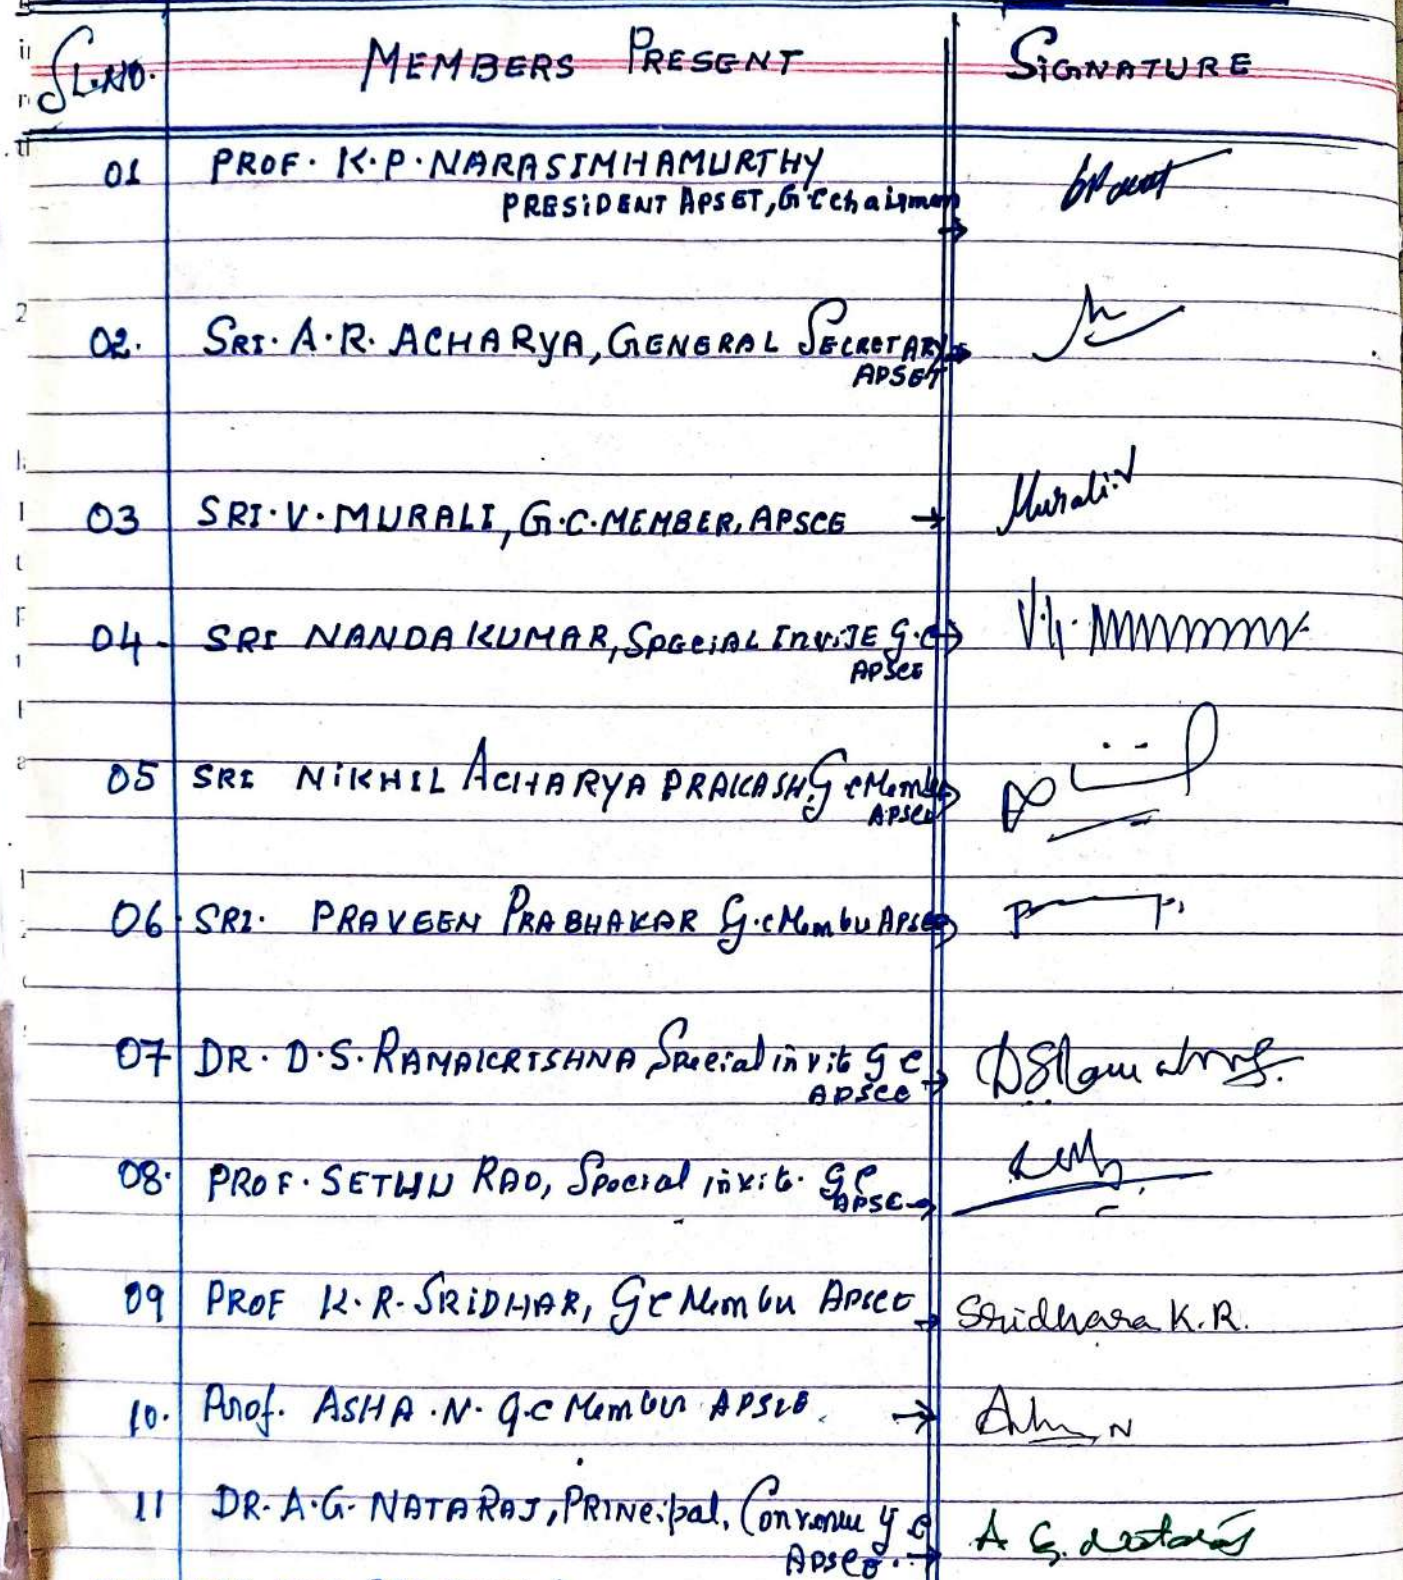 SL.NO. MEMBERS PRESENT SIGNATURE
01 PROF. K.P. NARASIMHAMURTHY
PRESIDENT APSET, G C Chairman →
02. SRI. A.R. ACHARYA, GENERAL SECRETARY →
APSET
03 SRI. V. MURALI, G.C. MEMBER, APSCE → Murali.V
04. SRI NANDAKUMAR, SPECIAL INVITE G.C →
APSCE
05 SRI NIKHIL ACHARYA PRAKASH, G C Memb →
APSCE
06. SRI. PRAVEEN PRABHAKAR G.C Member APSCE →
07 DR. D.S. RAMAKRISHNA Special invit G C →
APSCE
08. PROF. SETHU RAO, Special invit. G C
APSC →
09 PROF K.R. SRIDHAR, G C Member APSCE → Sridhara K.R.
10. Prof. ASHA .N. G.C Member APSCE. → N
11 DR. A.G. NATARAJ, PRINcipal, Convenor G C A G. Nataraj
APSCE. →